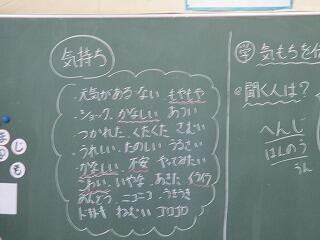 気持ち
・元気がある・ない もやもや
・ショック、かなしい あつい
つかれた、くたくた さむい
・うれしい、たのしい うるさい
かなしい、不安 やってみたい
こわい、いやな、あきた イライラ
めんどう ニコニコ うきうき
ドキドキ ねむい ゴロゴロ
学 気もちを
聞く人は?
へんじ
はんのう
うん
じ
も